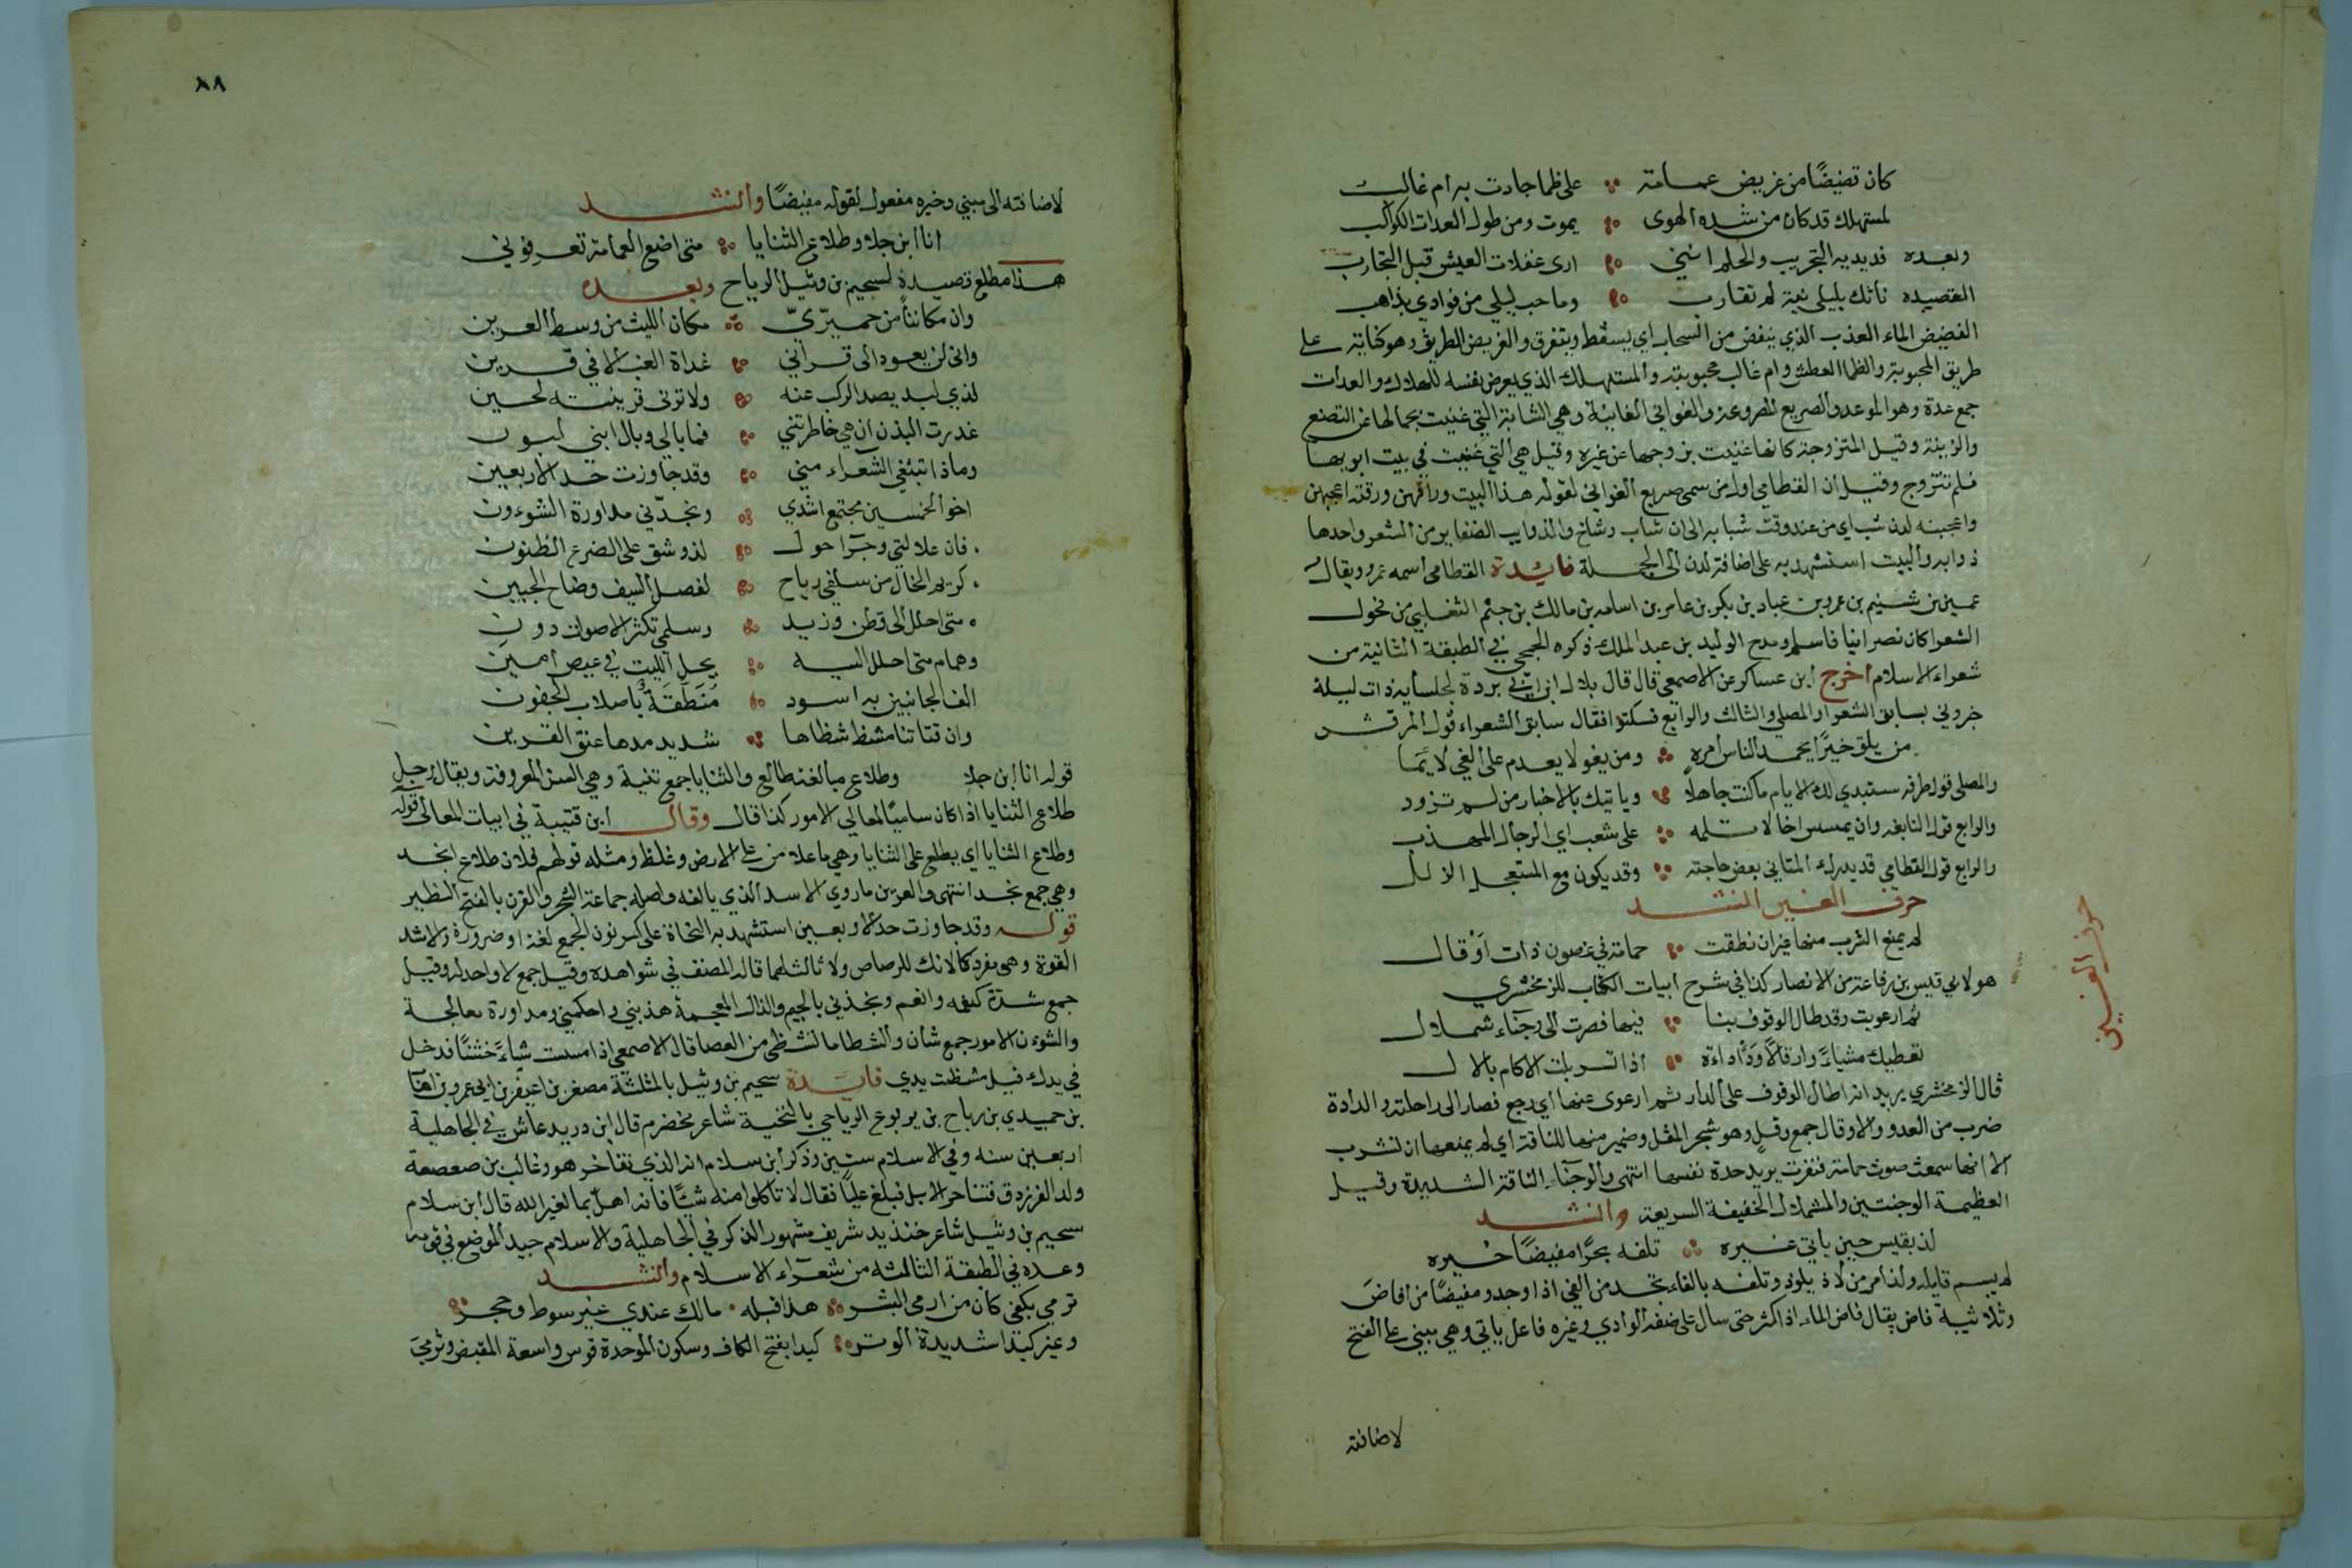 كان تضيضًا من غريض غمامة ∴ على ظما جادت به ام غالب
لمستهلك قد كان من شدة الهوى ∴ يموت ومن طول العدات الكواذب
وبعده قديديمة التجريب والحلم انني ∴ ارى غفلات العيش قبل التجارب
القصيده ناتك بليلى نية لم تقارب ∴ وما حب ليلى من فوادي بذاهب
الفضيض الماء العذب الذي ينفض من السحاب اي يسقط ويتفرق والغريض الطريف وهو كناية على
طريق المحبوبة والظما العطش وام غالب محبوبته والمستهلك الذي يعرض نفسه للهلاك والعدات
جمع عدة وهو الموعد والصريع المصروعة والغواني الغانية وهي الشابة التي غنيت بجمالها عن التصنع
والزينة وقيل المتزوجة كانها غنيت بزوجها عن غيره وقيل هي التي غنيت في بيت ابويها
فلم تتزوج وقيل ان القطامي اول من سمي صريع الغواني لقوله هذا البيت وراقهن ورقنه اعجبهن
واعجبنه لدن شب اي من عند وقت شبابه الى ان شاب وشاخ والذوايب الضفاير من الشعر واحدها
ذوابه والبيت استشهد به على اضافة لدن الى الجملة فايدة القطامي اسمه عمرو ويقال
عمير بن شييم بن عمرو بن عباد بن بكر بن عامر بن اسامه بن مالك بن جشم التغلبي من فحول
الشعرا كان نصرانيا فاسلم ومدح الوليد بن عبد الملك ذكره الجمحي في الطبقة الثانية من
شعراء الاسلام اخرج ابن عساكر عن الاصمعي قال قال بلال ابن ابي بردة لجلسايه ذات ليلة
خبروني بسابق الشعرا والمصلي والثالث والرابع فسكتوا فقال سابق الشعراء قول المرقش
من يلق خيرًا يحمد الناس امره ∴ ومن يغو لا يعدم على الغي لايما
والمصلي قول طرفه ستبدي لك الايام ما كنت جاهلا ∴ وياتيك بالاخبار من لم تزود
والرابع قول النابغه وان يمسس اخا لا تلمه ∴ على شعب اي الرجال المهذب
والرابع قول القطامي قد يدرك المتاني بعض حاجته ∴ وقد يكون مع المستعجل الزلل
حرف الغين انشد
حرف الغين
لم يمنع الشرب منها غير ان نطقت ∴ حمامة في غصون ذات اوقال
هو لابي قيس بن رفاعة من الانصار كذا في شرح ابيات الكتاب للزمخشري
ثم ارعويت وقد طال الوقوف بنا ∴ فيها فصرت الى وجناء شملال
تعطيك مشياً وارقالا وداداة ∴ اذا تسربلت الاكام بالال
قال الزمخشري يريد انه اطال الوقوف على الدار ثم ارعوى عنها اي رجع فصار الى راحلته والدادة
ضرب من العدو والاوقال جمع وقل وهو شجر المقل وضمير منها للناقة اي لم يمنعها ان تشرب
الا انها سمعت صوت حمامة فنفرت يريد حدة نفسها انتهى والوجناء الناقة الشديدة وقيل
العظيمة الوجنتين والشملال الخفيفة السريعة وانشد
لذ بقيس حين ياتي غيره ∴ تلفه بحرًا مفيضًا خيره
لم يسم قايله ولذ امر من لاذ يلوذ وتلفه بالفاء تجد من الفي اذا وجد ومفيضًا من افاض
وثلاثية فاض يقال فاض الماء اذا كثر حتى سال على ضفة الوادي وغيره فاعل ياتي وهي مبني على الفتح
لاضافته
٨٨
لاضافته الى مبني وخيره مفعول لقوله مفيضًا وانشد
انا ابن جلا وطلاع الثنايا ∴ متى اضع العمامة تعرفوني
هذا مطلع قصيدة لسحيم بن وثيل الرياحي وبعده
وان مكاننا من حميريّ ∴ مكان الليث من وسط العرين
واني لن يعود الى قراني ∴ غداة الغب الا في قرين
لذي لبد يصد الركب عنه ∴ ولا توتى قرينته لحين
غدرت البذن ان هي خاطرتني ∴ فما بالي وبال ابني لبون
وماذا تبتغي الشعراء مني ∴ وقد جاوزت حد الاربعين
اخو الخمسين مجتمع اشدي ∴ ونجذني مداورة الشوءون
فان علالتي وجرا حول ∴ لذو شق على الضرع الظنون
كريم الخال من سلفي رياح ∴ كفصل السيف وضاح الجبين
متى احلل الى قطن وزيد ∴ وسلمى تكثر الاصوات دون
وهمام متى احلل اليه ∴ يحل الليث في عيص امين
الف الجانبين به اسود ∴ مُنَطَقَةٌ باصلاب الجفون
وان قناتنا مشظ شظاها ∴ شديد مدها عنق القرين
قوله انا ابن جلا وطلاع مبالغة طالع والثنايا جمع ثنية وهي السن المعروفة ويقال رجل
طلاع الثنايا اذا كان ساميًا لمعالي الامور كذا قال وقال ابن قتيبة في ابيات المعاني قوله
وطلاع الثنايا اي يطلع على الثنايا وهي ما علا من على الارض وغلظ ومثله قولهم فلان طلاع انجد
وهي جمع نجد انتهى والعرين ماوى الاسد الذي يالفه واصله جماعة الشجر والقرن بالفتح النظير
قوله وقد جاوزت حد الاربعين استشهد به النحاة على كسر نون الجمع لغة او ضرورة والاشد
القوة وهي مفرد كالانك للرصاص ولا ثالث لهما قاله المصنف في شواهده وقيل جمع لا واحد له وقيل
جمع شدة كنعمه وانعم ونجذني بالجيم والذال المعجمة هذبني واحكمني ومداورة معالجة
والشوءن الامور جمع شان والشظا ما تشظى من العصا قال الاصمعي اذا مسست شياءً خشنًا فدخل
في يدك قيل مشظت يدي فايدة سحيم بن وثيل بالمثلثة مصغر بن اعيفر بن ابي عمرو بن اهاب
بن حميري بن رياح بن يربوع الرياحي بالتحتية شاعر مخضرم قال ابن دريد عاش في الجاهلية
اربعين سنه وفي الاسلام ستين وذكر ابن سلام انه الذي تفاخر هو وغالب بن صعصعة
ولد الفرزدق فتناحر الابل فبلغ عليًا فقال لا تاكلوا منه شيًا فانه اهل بما لغير الله قال ابن سلام
سحيم بن وثيل شاعر خنذيد شريف مشهور الذكر في الجاهلية والاسلام جيد الموضع في قومه
وعده في الطبقة الثالثه من شعراء الاسلام وانشد
ترمي بكفي كان من ارمى البشر ∴ هذا قبله مالك عندي غير سوط وحجر ∴
وغير كبدا شديدة الوتر ∴ كبدا بفتح الكاف وسكون الموحدة قوس واسعة المقبض وترمي